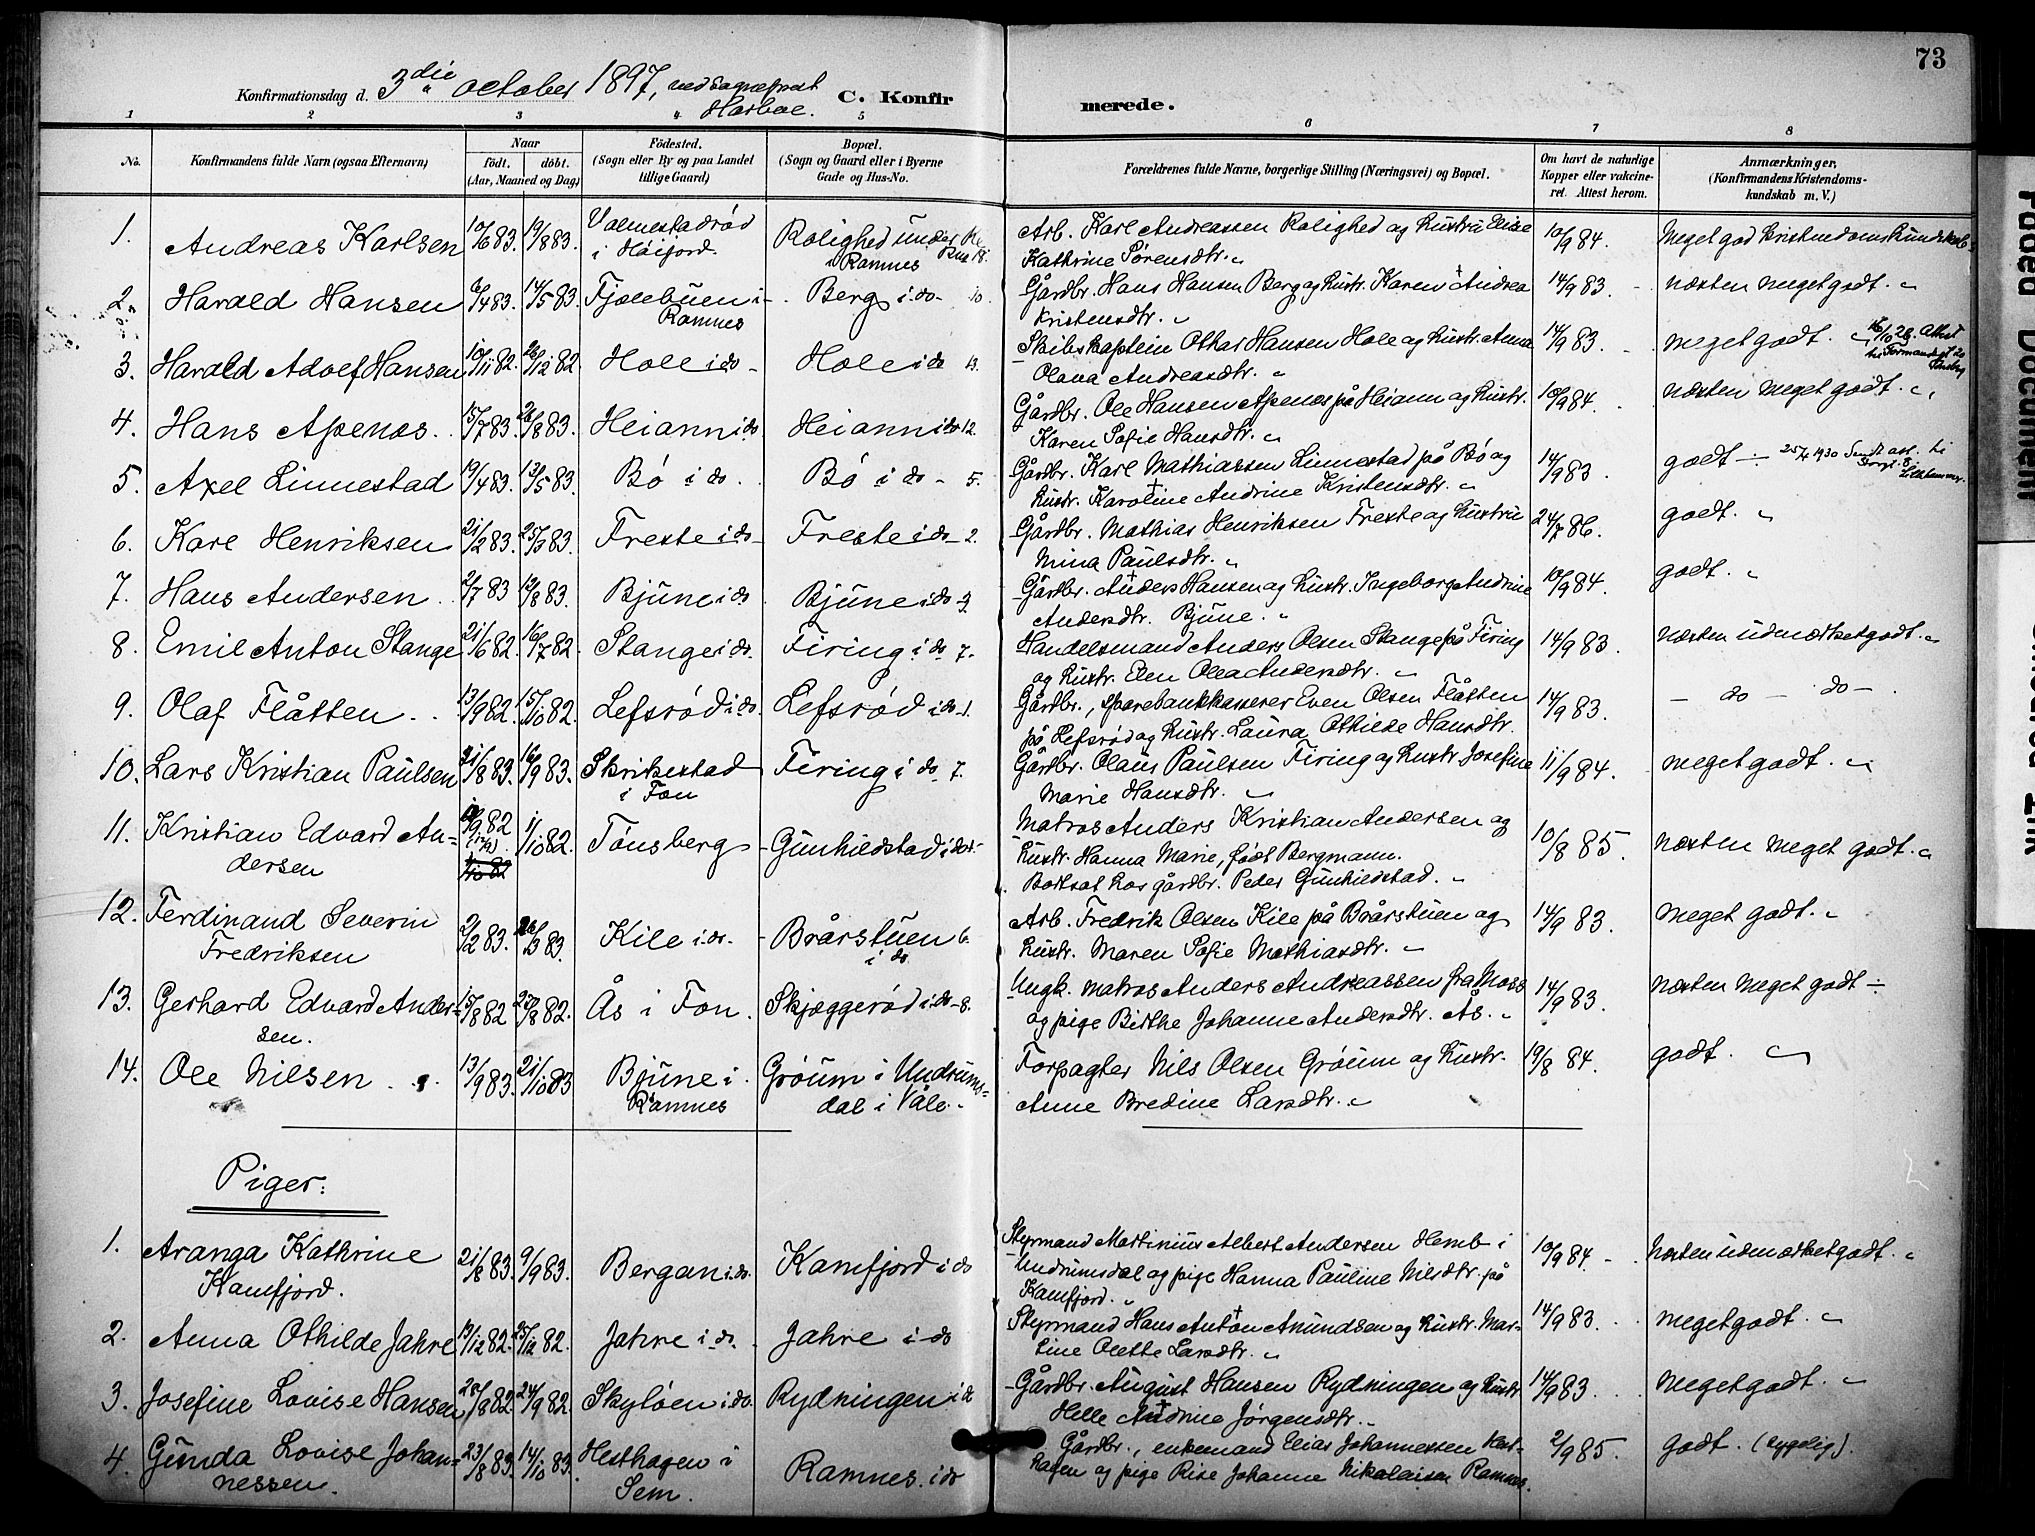 73
Konfirmationsdag d. 3die october 1897, ved Sognepræst
Harboe.
C. Konfirmerede.
1 2 3 4 5 6 7 8
No. Konfirmandens fulde Navn (ogsaa Efternavn) Naar födt. döbt. (Aar, Maaned og Dag) Födested. (Sogn eller By og paa Landet tillige Gaard) Bopæl. (Sogn og Gaard eller i Byerne Gade og Hus-No. Forældrenes fulde Navne, borgerlige Stilling (Næringsvei) og Bopæl. Om havt de naturlige Kopper eller vakcineret. Attest herom. Anmærkninger, (Konfirmandens Kristendomskundskab m. V.)
1. Andreas Karlsen 10/6 83. 19/8 83. Valmestadrød i Høijord. Rolighed under i Ramnes 18. Arb. Karl Andreassen Rolighed og hustru Elise
Kathrine Sørensdtr. 10/9 84. Meget god Kristendomskundskab
2. Harald Hansen 6/4 83. 14/5 83. Fjælebuen i Ramnes Berg i do 10. Gårdbr. Hans Hansen Berg og hustr. Karen Andrea
Kristensdtr. 14/9 83. næsten meget godt.
3. Harald Adolf Hansen 10/11 82. 26/12 82. Holl i do Hole i do 13. Skibskaptein Othar Hansen Hole og hustr. Anna
Olava Andreasdtr. 14/9 83. meget godt. 10/26. Attest
4. Hans Apenæs. 15/7 83. 26/8 83. Heian i do. Heian i do 12. Gårdbr. Ole Hansen Apenæs på Heian og hustr.
Karen Sofie Hansdtr. 10/9 84. næsten meget godt.
5. Axel Linnestad 19/4 83. 13/5 83. Bö i do. Bö i do 5. Gårdbr. Karl Mathiassen Linnestad på Bö og
hustr. Karoline Andrine Kristensdtr. 14/9 83. godt 25/4 1930 Sendt att. ti
Storgt. 8.
Lillehammer.
6. Karl Henriksen 21/2 83. 25/3 83. Freste i do Freste i do 2. Gårdbr. Mathias Henriksen Freste og hustru
Mina Paulsdtr. 24/7 86. godt.
7. Hans Andersen 2/7 83 12/8 83. Bjune i do Bjune i do Gårdbr. Anders Hansen og hustr. Ingeborg Andrine
Andersdtr. Bjune. 10/9 84. godt.
8. Emil Anton Stange 21/6 82. 16/7 82. Stange i do. Firing i do 7. Handelsmand Anders Olsen Stange på Firing
og hustr. Elen Olea Andersdtr. 14/9 83. næsten udmærketgodt.
9. Olaf Flåtten 13/9 82. 15/10 82. Lefsrød i do. Lefsrød i do 1. Gårdbr., sparebankkasserer Even Olsen Flåtten
på Lefsrød og hustr. Laura Othilde Hansdtr. 14/9 83. - do - do -
10. Lars Kristian Paulsen 21/8 83. 16/9 83. Skrikestad i Fon Firing i do 7. Gårdbr. Olaus Paulsen Firing og hustr. Josefine
Marie Hansdtr. 11/9 84. meget godt.
11. Kristian Edvard Andersen 10/9 82 1/10 82. Tønsberg Gunhildstad i do Matros Anders Kristian Andersen og
hustr. Hanna Marie, født Bergmann.
Bortsat hos gårdbr. Peder Gunhildstad. 10/8 85. næsten meget godt.
12. Ferdinand Severin Fredriksen 2/2 83. 26/3 83. Kile i do. Brårstuen i do 6. Arb. Fredrik Olsen Kile på Brårstuen og
hustr. Maren Sofie Mathiasdtr. 14/9 83. meget godt.
13. Gerhard Edvard Andersen. 15/8 82 27/8 82. Ås i Fon. Skjæggerød i do 8. Ungk. matros Anders Andreassen fra Moss
og pige Birthe Johanne Andersdtr. Ås. 14/9 83. næsten meget godt
14. Ole Nilsen 13/9 83. 21/10 83 Bjune i Ramnes Gröum i Undrumsdal i Våle. Forpagter Nils Olsen Gröum og hustr.
Anne Bredine Larsdtr. 19/8 84. godt.
Piger:
1. Aranga Kathrine Kamfjord. 21/8 83. 9/9 83. Bergan i do. Kamfjord i do Styrmand Martinius Albert Andersen Hemb i
Undrumsdal og pige Hanna Pauline Nilsdtr. på
Kamfjord. 10/9 84. næsten udmærketgodt.
2. Anna Othilde Jahre 13/12 82. 25/12 82. Jahre i do. Jahre i do Styrmand Hans Anton Amundsen og hustr. Martine Olette Larsdtr. 14/9 83. meget godt.
3. Josefine Lovise Hansen 28/8 82. 24/9 82. Skyløen i do. Rydningen i do Gårdbr. August Hansen Rydningen og hustr.
Helle Andrine Jørgensdtr. 14/9 83. meget godt.
4. Gunda Lovise Johannessen. 23/8 83. 14/10 83. Hesthagen i Sem. Ramnes. i do Gårdbr., enkemand Elias Johannessen Hesthagen og pige Rise Johanne Nikolaisen Ramnes. 2/9 85. godt. (sygelig).